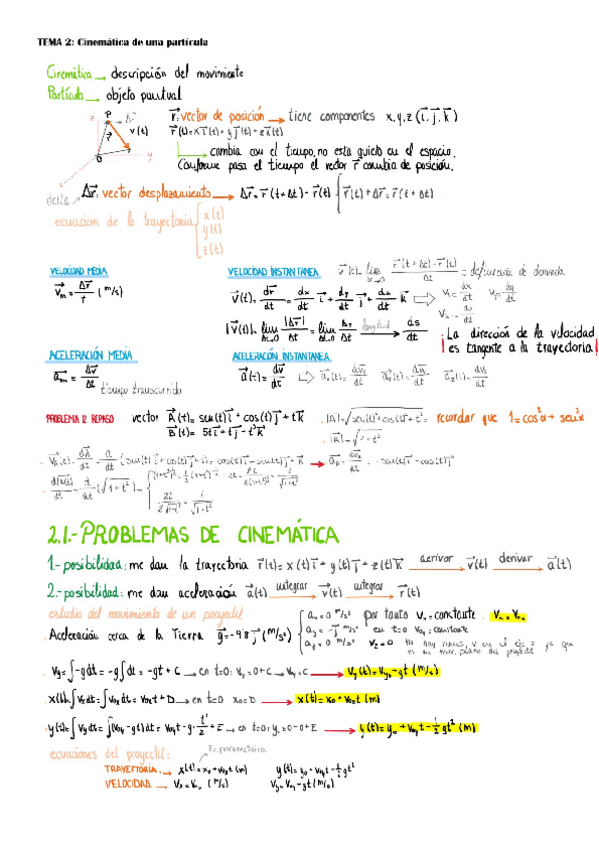 TEMA 2: Cinemática de una partícula
Cinemática → descripción del movimiento
Partícula → objeto puntual
r⃗: vector de posición → tiene componentes x, y, z (i⃗, j⃗, k⃗)
r⃗(t) = x i⃗(t) + y j⃗(t) + z i⃗(t)
z P Δr⃗ r⃗ v(t) O y
cambia con el tiempo, no esta quieto en el espacio.
Conforme pasa el tiempo el vector r⃗ cambia de posición.
delta Δr⃗: vector desplazamiento → Δr⃗ = r⃗(t+Δt) - r⃗(t) { r⃗(t) + Δr⃗ = r⃗(t+Δt)
ecuación de la trayectoria { x(t)
y(t)
z(t)
VELOCIDAD MEDIA
v⃗m = Δr⃗/t (m/s)
VELOCIDAD INSTANTANEA v⃗(t) = lim r⃗(t+Δt) - r⃗(t) / Δt = definición de derivada
v⃗(t) = dr⃗/dt = dx/dt i⃗ + dy/dt j⃗ + dz/dt k⃗ ⇒ Vx = dx/dt Vy = dy/dt
Vz = dz/dt
|v⃗(t)| = lim Δt→0 |Δr⃗|/Δt = lim Δt→0 Δs/Δt longitud → ds/dt
¡La dirección de la velocidad
es tangente a la trayectoria!
ACELERACIÓN MEDIA
a⃗m = Δv⃗/Δt tiempo transcurrido
ACELERACIÓN INSTANTANEA
a⃗(t) = dv⃗/dt ⇒ ax(t) = dvx/dt ay(t) = dvy/dt az(t) = dvz/dt
PROBLEMA 12 REPASO vector A⃗(t) = sen(t) i⃗ + cos(t) j⃗ + t k⃗
B⃗(t) = 5t i⃗ + t j⃗ - t² k⃗
|A| = √sen²(t) + cos²(t) + t² = recordar que 1 = cos²α + sen²α
|A| = √1+t²
2.1.- PROBLEMAS DE CINEMÁTICA
1.- posibilidad: me dan la trayectoria r⃗(t) = x(t) i⃗ + y(t) j⃗ + z(t) k⃗ derivar → v⃗(t) derivar → a⃗(t)
2.- posibilidad: me dan aceleración a⃗(t) integrar → v⃗(t) integrar → r⃗(t)
estudio del movimiento de un proyectil
Aceleración cerca de la Tierra g⃗ = -9'8 j⃗ (m/s²)
ax = 0 m/s² por tanto Vx = constante. Vx = V0x
ay = -g m/s² en t=0 V0y = constante
az = 0 m/s² Vz = 0
Vy = ∫-g dt = -g∫dt = -gt + C → en t=0: Vy = 0 + C → Vy = C → Vy(t) = Vy0 - gt (m/s)
x(t) = ∫Vx dt = ∫V0x dt = V0x t + D → en t=0 x0 = D → x(t) = x0 + V0x t (m)
y(t) = ∫Vy dt = ∫(V0y - gt) dt = V0y t - g · t²/2 + E → en t=0: y0 = 0 - 0 + E → y(t) = y0 + V0y t - ½ g t² (m)
ecuaciones del proyectil: Ec. paramétrica
TRAYECTORIA → x(t) = x0 + V0x t (m) y(t) = y0 + V0y t - ½ g t²
VELOCIDAD → Vx = V0x (m/s) Vy = V0y - gt (m/s)